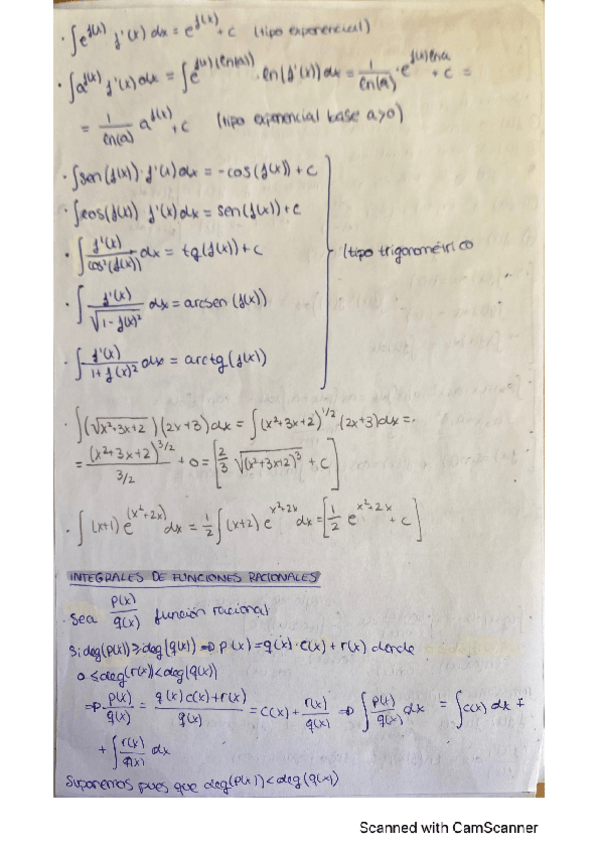 · ∫e^f(x) f'(x) dx = e^f(x) + c (tipo exponencial)
· ∫a^f(x) f'(x) dx = ∫e^f(x)(ln(a)) · ln(f'(x)) dx = 1/ln(a) · e^f(x) ln a + c =
= 1/ln(a) a^f(x) + c (tipo exponencial base a>0)
· ∫sen(f(x)) · f'(x) dx = -cos(f(x)) + c
· ∫cos(f(x)) f'(x) dx = sen(f(x)) + c
· ∫ f'(x)/cos²(f(x)) dx = tg(f(x)) + c (tipo trigonométrico
· ∫ f'(x)/√(1-f(x)²) dx = arcsen(f(x))
· ∫ f'(x)/(1+f(x)²) dx = arctg(f(x))
· ∫(√x²+3x+2)(2x+3)dx = ∫(x²+3x+2)^1/2 (2x+3)dx =
= (x²+3x+2)^3/2 / 3/2 + 0 = [2/3 √(x²+3x+2)³ + c]
· ∫(x+1) e^(x²+2x) dx = 1/2 ∫(x+2) e^x²+2x dx = [1/2 e^x²+2x + c]
INTEGRALES DE FUNCIONES RACIONALES
· Sea p(x)/q(x) función racional
Si deg(p(x)) ≥ deg(q(x)) ⇒ p(x) = q(x) · c(x) + r(x) donde
0 ≤ deg(r(x)) < deg(q(x))
⇒ p(x)/q(x) = q(x) c(x) + r(x) / q(x) = c(x) + r(x)/q(x) ⇒ ∫ p(x)/q(x) dx = ∫c(x) dx +
+ ∫ r(x)/q(x) dx
Suponemos pues que deg(p(x)) < deg(q(x))
Scanned with CamScanner